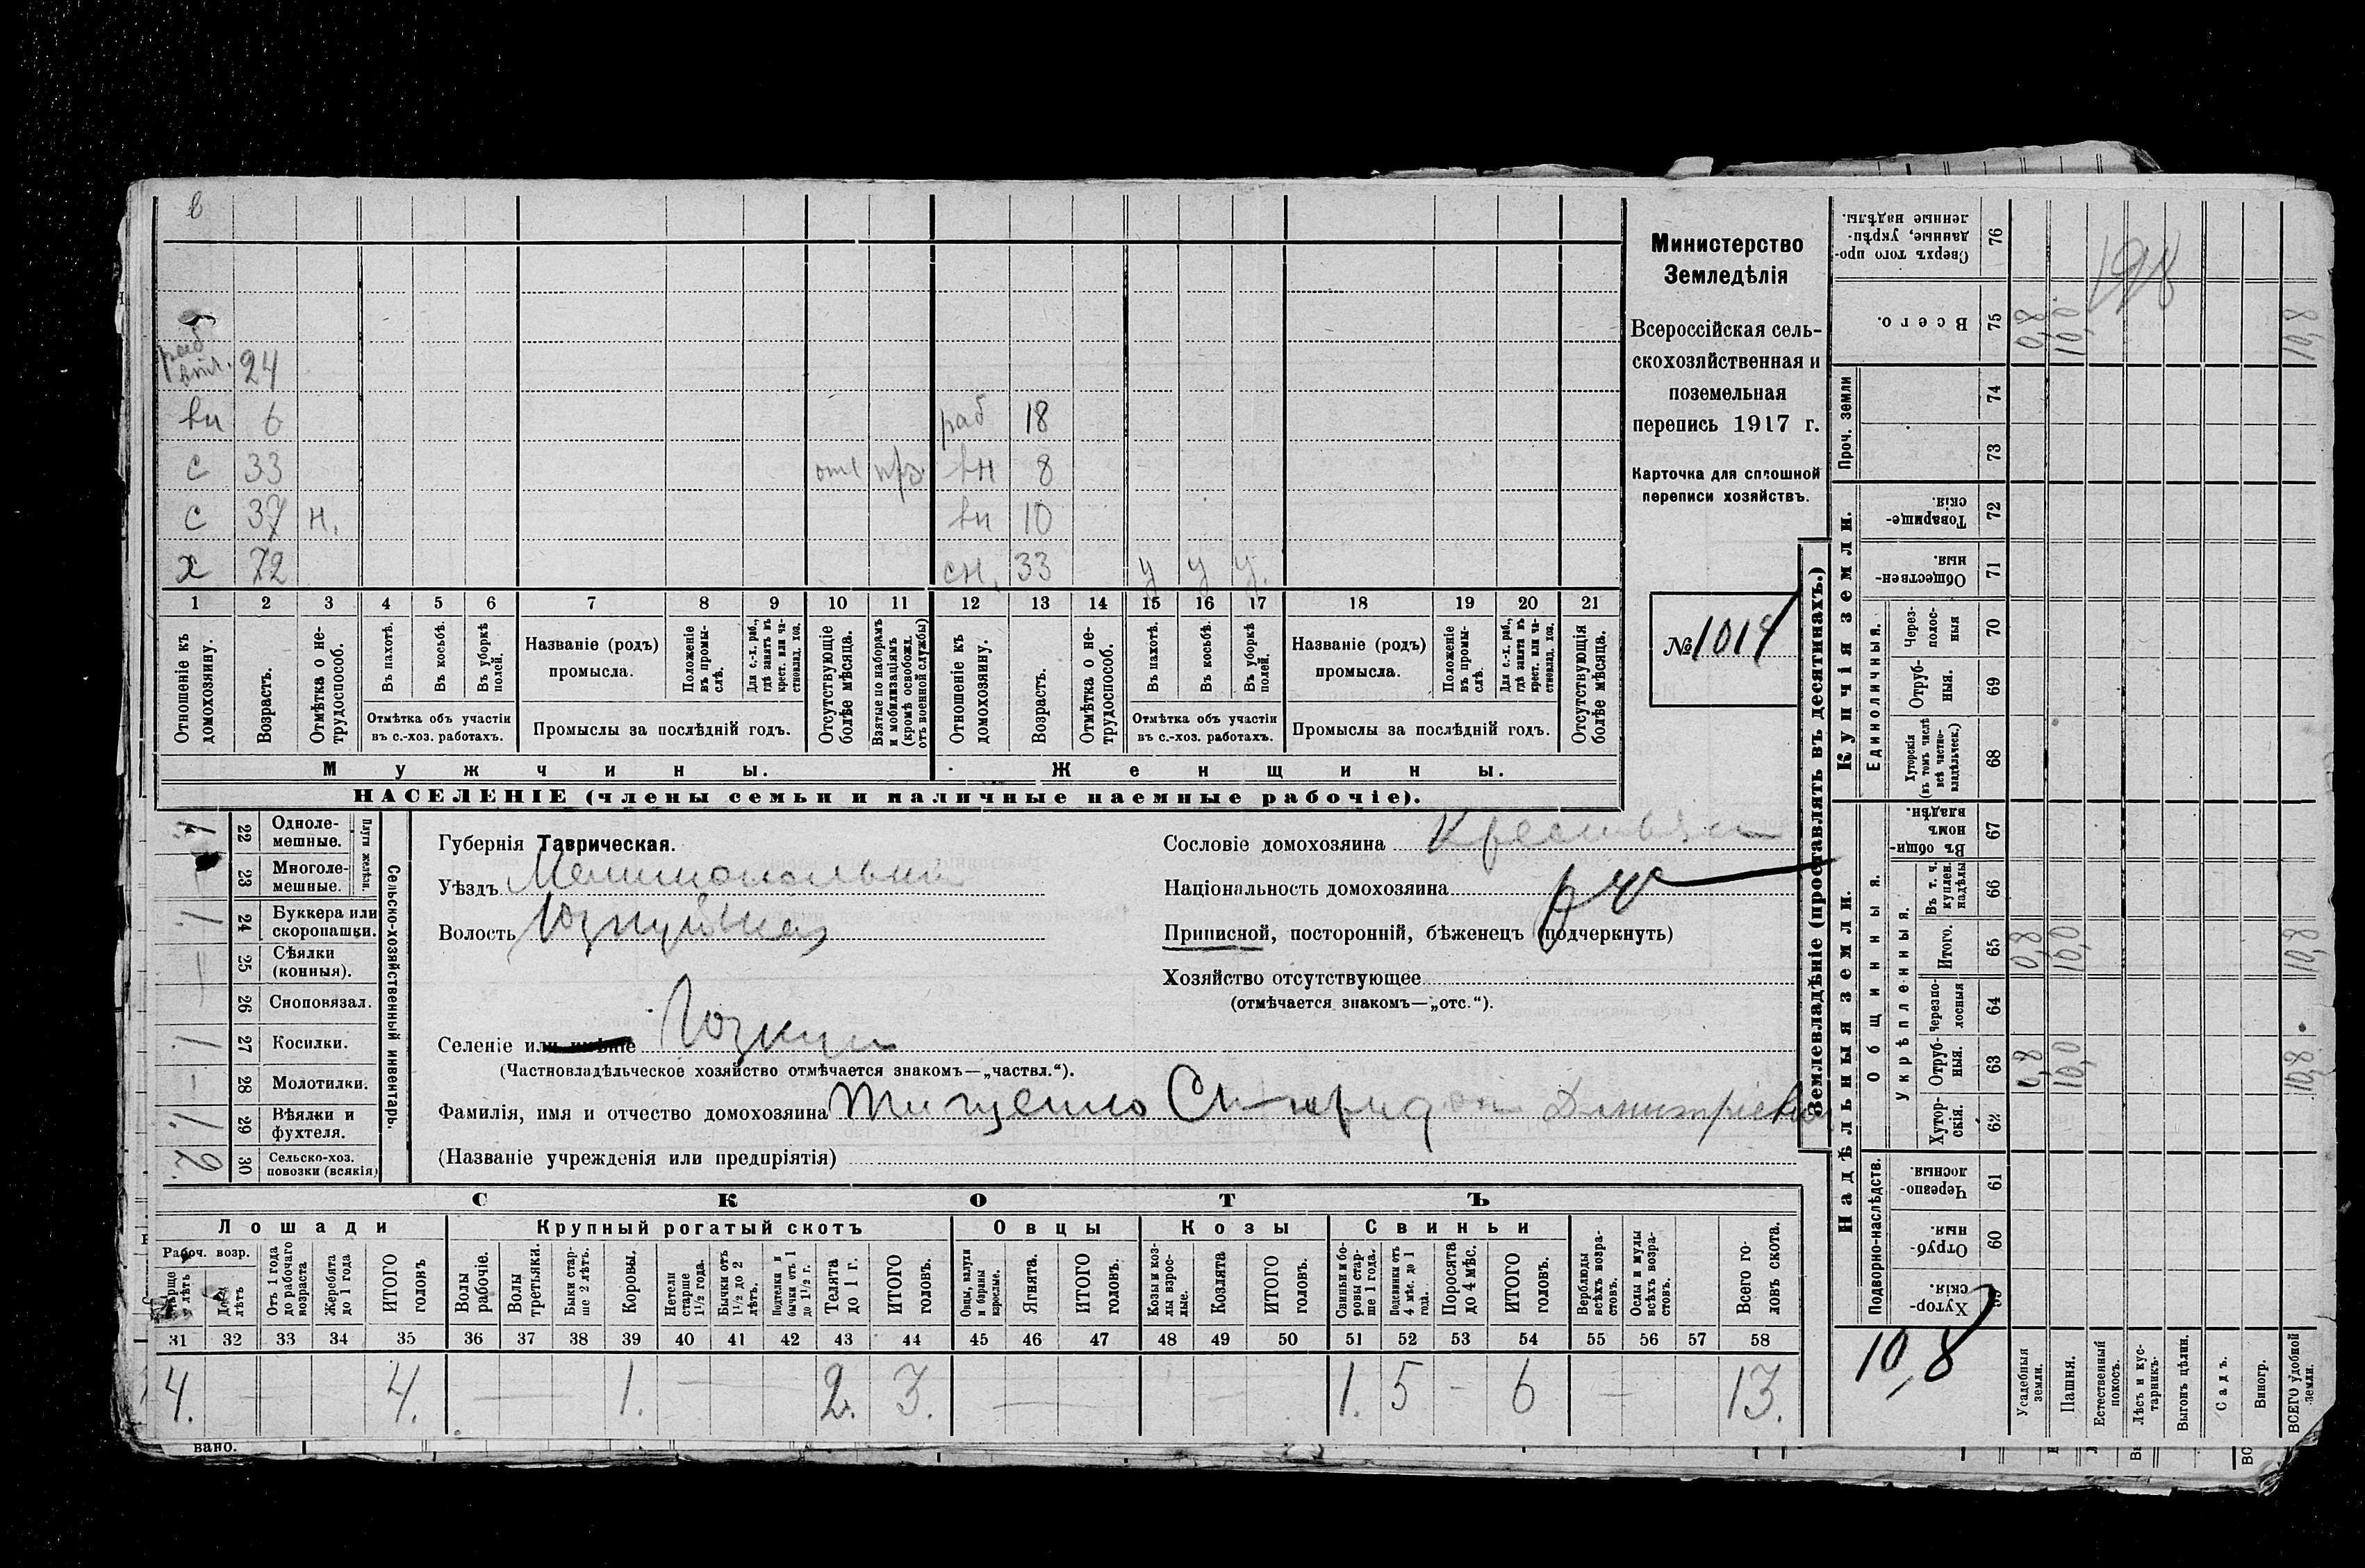 Министерство
Земледѣлія
Всероссійская сель-
скохозяйственная и
поземельная
перепись 1917 г.
Карточка для сплошной
переписи хозяйствъ.
№ 1014
раб 24
вн 6 раб 18
с 33 отс вн 8
с 37 н. вн 10
х 72 сн. 33 у у у.
1 2 3 4 5 6 7 8 9 10 11 12 13 14 15 16 17 18 19 20 21
Отношеніе къ домохозяину.
Возрастъ.
Отмѣтка о не-трудоспособ.
Въ пахотѣ.
Въ косьбѣ.
Въ уборкѣ полей.
Отмѣтка объ участіи
въ с.-хоз. работахъ.
Названіе (родъ)
промысла.
Положеніе въ промы-слѣ.
Для с.-х. раб., гдѣ занятъ въ крест. или ча-стновлад. хоз.
Промыслы за послѣдній годъ.
Отсутствующіе болѣе мѣсяца.
Взятые по наборамъ и мобилизаціямъ (кромѣ освобожд. отъ военной службы)
Отношеніе къ домохозяину.
Возрастъ.
Отмѣтка о не-трудоспособ.
Въ пахотѣ.
Въ косьбѣ.
Въ уборкѣ полей.
Отмѣтка объ участіи
въ с.-хоз. работахъ.
Названіе (родъ)
промысла.
Положеніе въ промы-слѣ.
Для с.-х. раб., гдѣ занята въ крест. или ча-стновлад. хоз.
Промыслы за послѣдній годъ.
Отсутствующія болѣе мѣсяца.
Мужчины. Женщины.
НАСЕЛЕНІЕ (члены семьи и наличные наемные рабочіе).
Сельско-хозяйственный инвентарь.
Плуги желѣзн.
22 Одноле-мешные.
23 Многоле-мешные.
1 24 Буккера или скоропашки.
— 25 Сѣялки (конныя).
26 Сноповязал.
1 27 Косилки.
— 28 Молотилки.
1 29 Вѣялки и фухтеля.
2. 30 Сельско-хоз. повозки (всякія)
Губернія Таврическая.
Уѣздъ Мелитопольскій
Волость Юзкуйская
Селеніе или имѣніе Юзкуи
(Частновладѣльческое хозяйство отмѣчается знакомъ—„частвл.“).
Фамилія, имя и отчество домохозяина Тищенко Спиридон Дмитріевъ
(Названіе учрежденія или предпріятія)
Сословіе домохозяина Крестьян
Національность домохозяина
Приписной, посторонній, бѣженецъ (подчеркнуть)
Хозяйство отсутствующее
(отмѣчается знакомъ—„отс.“).
СКОТЪ
Лошади Крупный рогатый скотъ Овцы Козы Свиньи
Рабоч. возр.
Отъ 1 года до рабочаго возраста
Жеребята до 1 года
ИТОГО головъ
Волы рабочіе.
Волы третьяки.
Быки стар-ше 2 лѣтъ.
Коровы.
Нетели старше 1½ года.
Бычки отъ 1½ до 2 лѣтъ.
Подтелки и бычки отъ 1 до 1½ г.
Телята до 1 г.
ИТОГО головъ.
Овцы, валухи и бараны взрослые.
Ягнята.
ИТОГО головъ.
Козы и коз-лы взрос-лые.
Козлята
ИТОГО головъ.
Свиньи и бо-ровы стар-ше 1 года.
Подсвинки отъ 4 мѣс. до 1 год.
Поросята до 4 мѣс.
ИТОГО головъ.
Верблюды всѣхъ возра-стовъ.
Ослы и мулы всѣхъ возра-стовъ.
Всего го-ловъ скота.
31 32 33 34 35 36 37 38 39 40 41 42 43 44 45 46 47 48 49 50 51 52 53 54 55 56 57 58
4. 4. — 1. — 2. 3. — — 1. 5 – 6 — 13.
Землевладѣніе (проставлять въ десятинахъ.)
Надѣльныя земли. Купчія земли. Проч. земли
Подворно-наслѣдств.
Общинныя.
Укрѣпленныя.
Единоличныя.
Хутор-скія. 59
Отруб-ныя. 60
Черезпо-лосныя. 61
Хутор-скія. 62
Отруб-ныя. 63 0,8 10,0 10,8
Черезпо-лосныя 64
Итого. 65 0,8 10,0 10,8
Въ т. ч. куплен. надѣлы 66
Въ общи-номъ владѣн. 67
Хуторскія (въ томъ числѣ всѣ частно-владѣльческ.) 68
Отруб-ныя. 69
Через-полос-ныя 70
Обществен-ныя. 71
Товарище-скія. 72
73
74
Всего. 75 0,8 10,0 10,8
Сверхъ того про-данные, укрѣп-ленные надѣлы. 76
10,8
Усадебныя земли.
Пашня.
Естественный покосъ.
Лѣсъ и кус-тарникъ.
Выгонъ цѣлин.
Садъ.
Виногр.
ВСЕГО удобной земли.
вано.